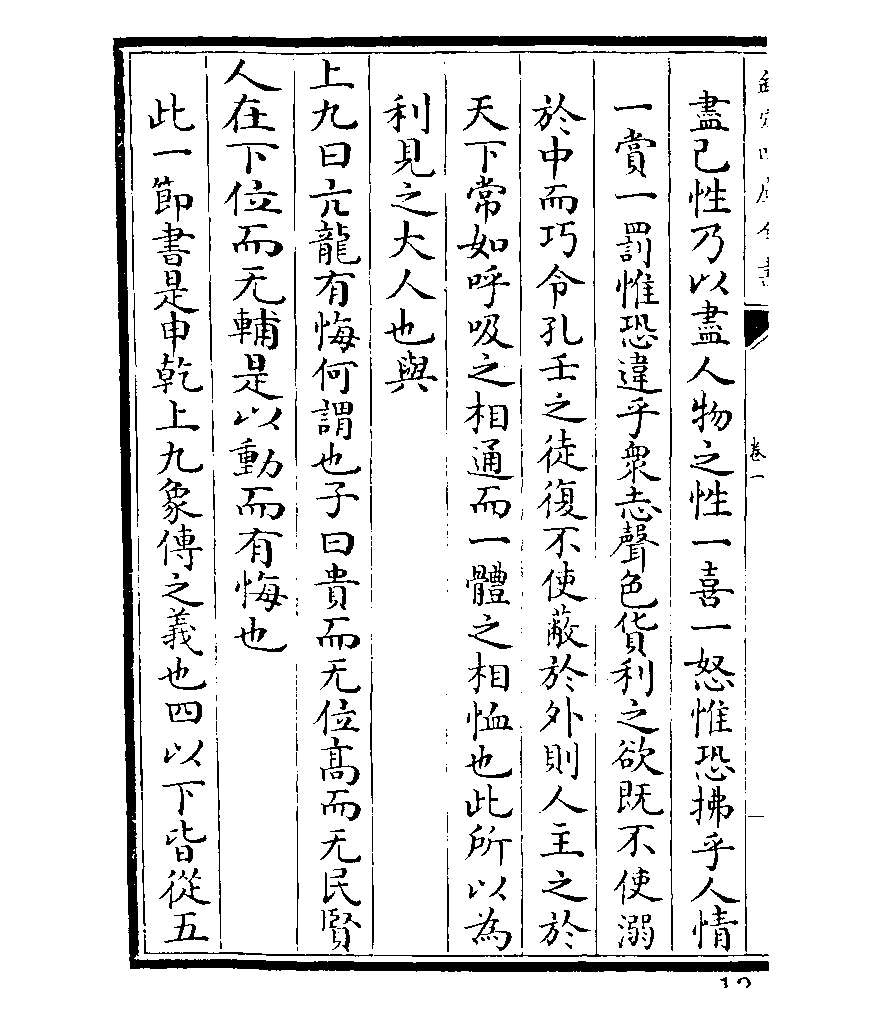 盡己性乃以盡人物之性一喜一怒惟恐拂乎人情
一賞一罰惟恐違乎衆志聲色貨利之欲既不使溺
於中而巧令孔壬之徒復不使蔽於外則人主之於
天下常如呼吸之相通而一體之相恤也此所以為
利見之大人也與
上九曰亢龍有悔何謂也子曰貴而无位髙而无民賢
人在下位而无輔是以動而有悔也
此一節書是申乾上九象傳之義也四以下皆從五
卷一